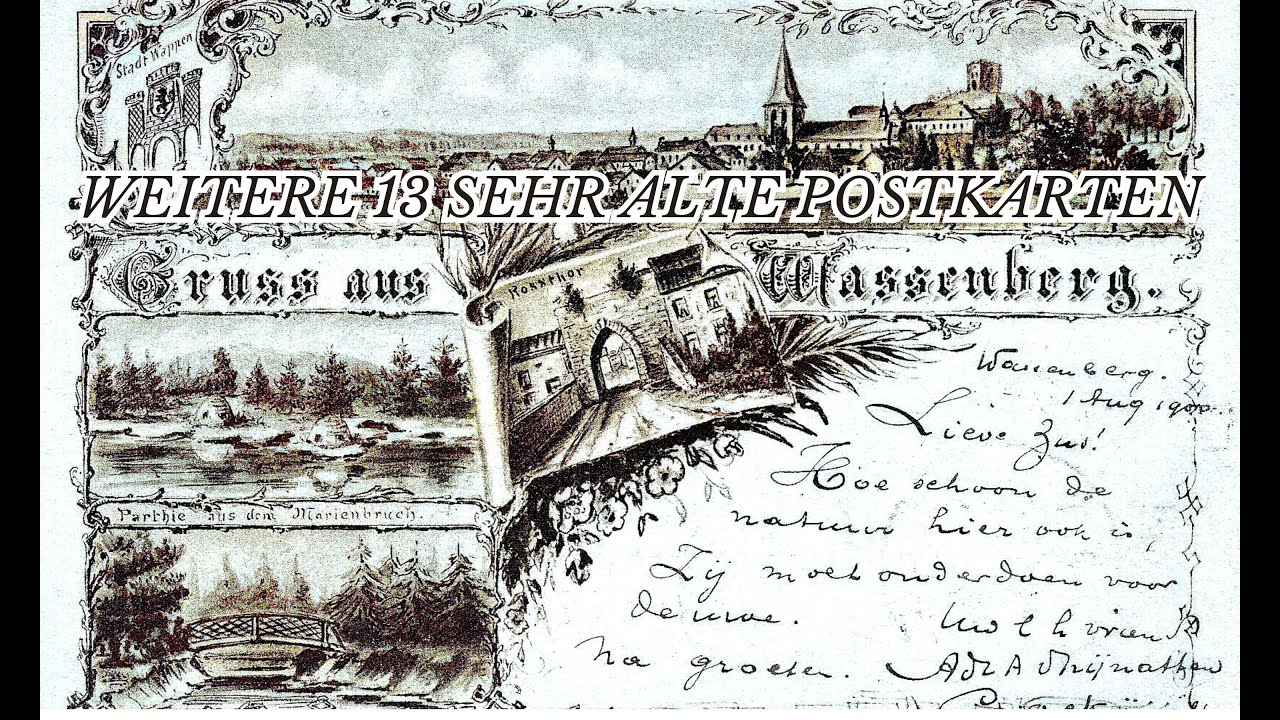 Stadt Wappen
WEITERE 13 SEHR ALTE POSTKARTEN
Gruss aus Wassenberg.
Rossthor
Wassenberg.
1 Aug 1900
Lieve Zus!
Hoe schoon de
natuur hier ook is,
Zij moet onderdoen voor
de uwe.
Na groeten.
Parthie aus dem Marienbruch.